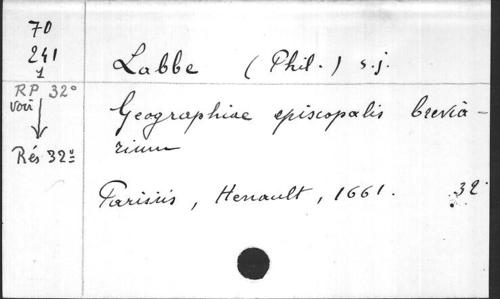 70
241
1
RP 32º
voir
Rés 32º
Labbe (Phil.) s.j.
Geographiae episcopalis brevia-
rium
Parisiis, Henault, 1661. 32º